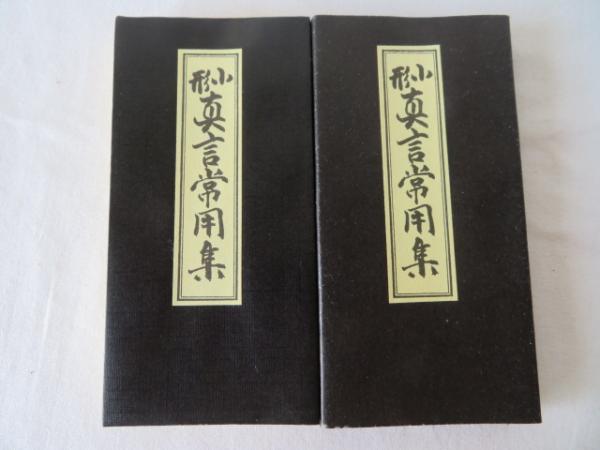 小形 真言常用集
小形 真言常用集